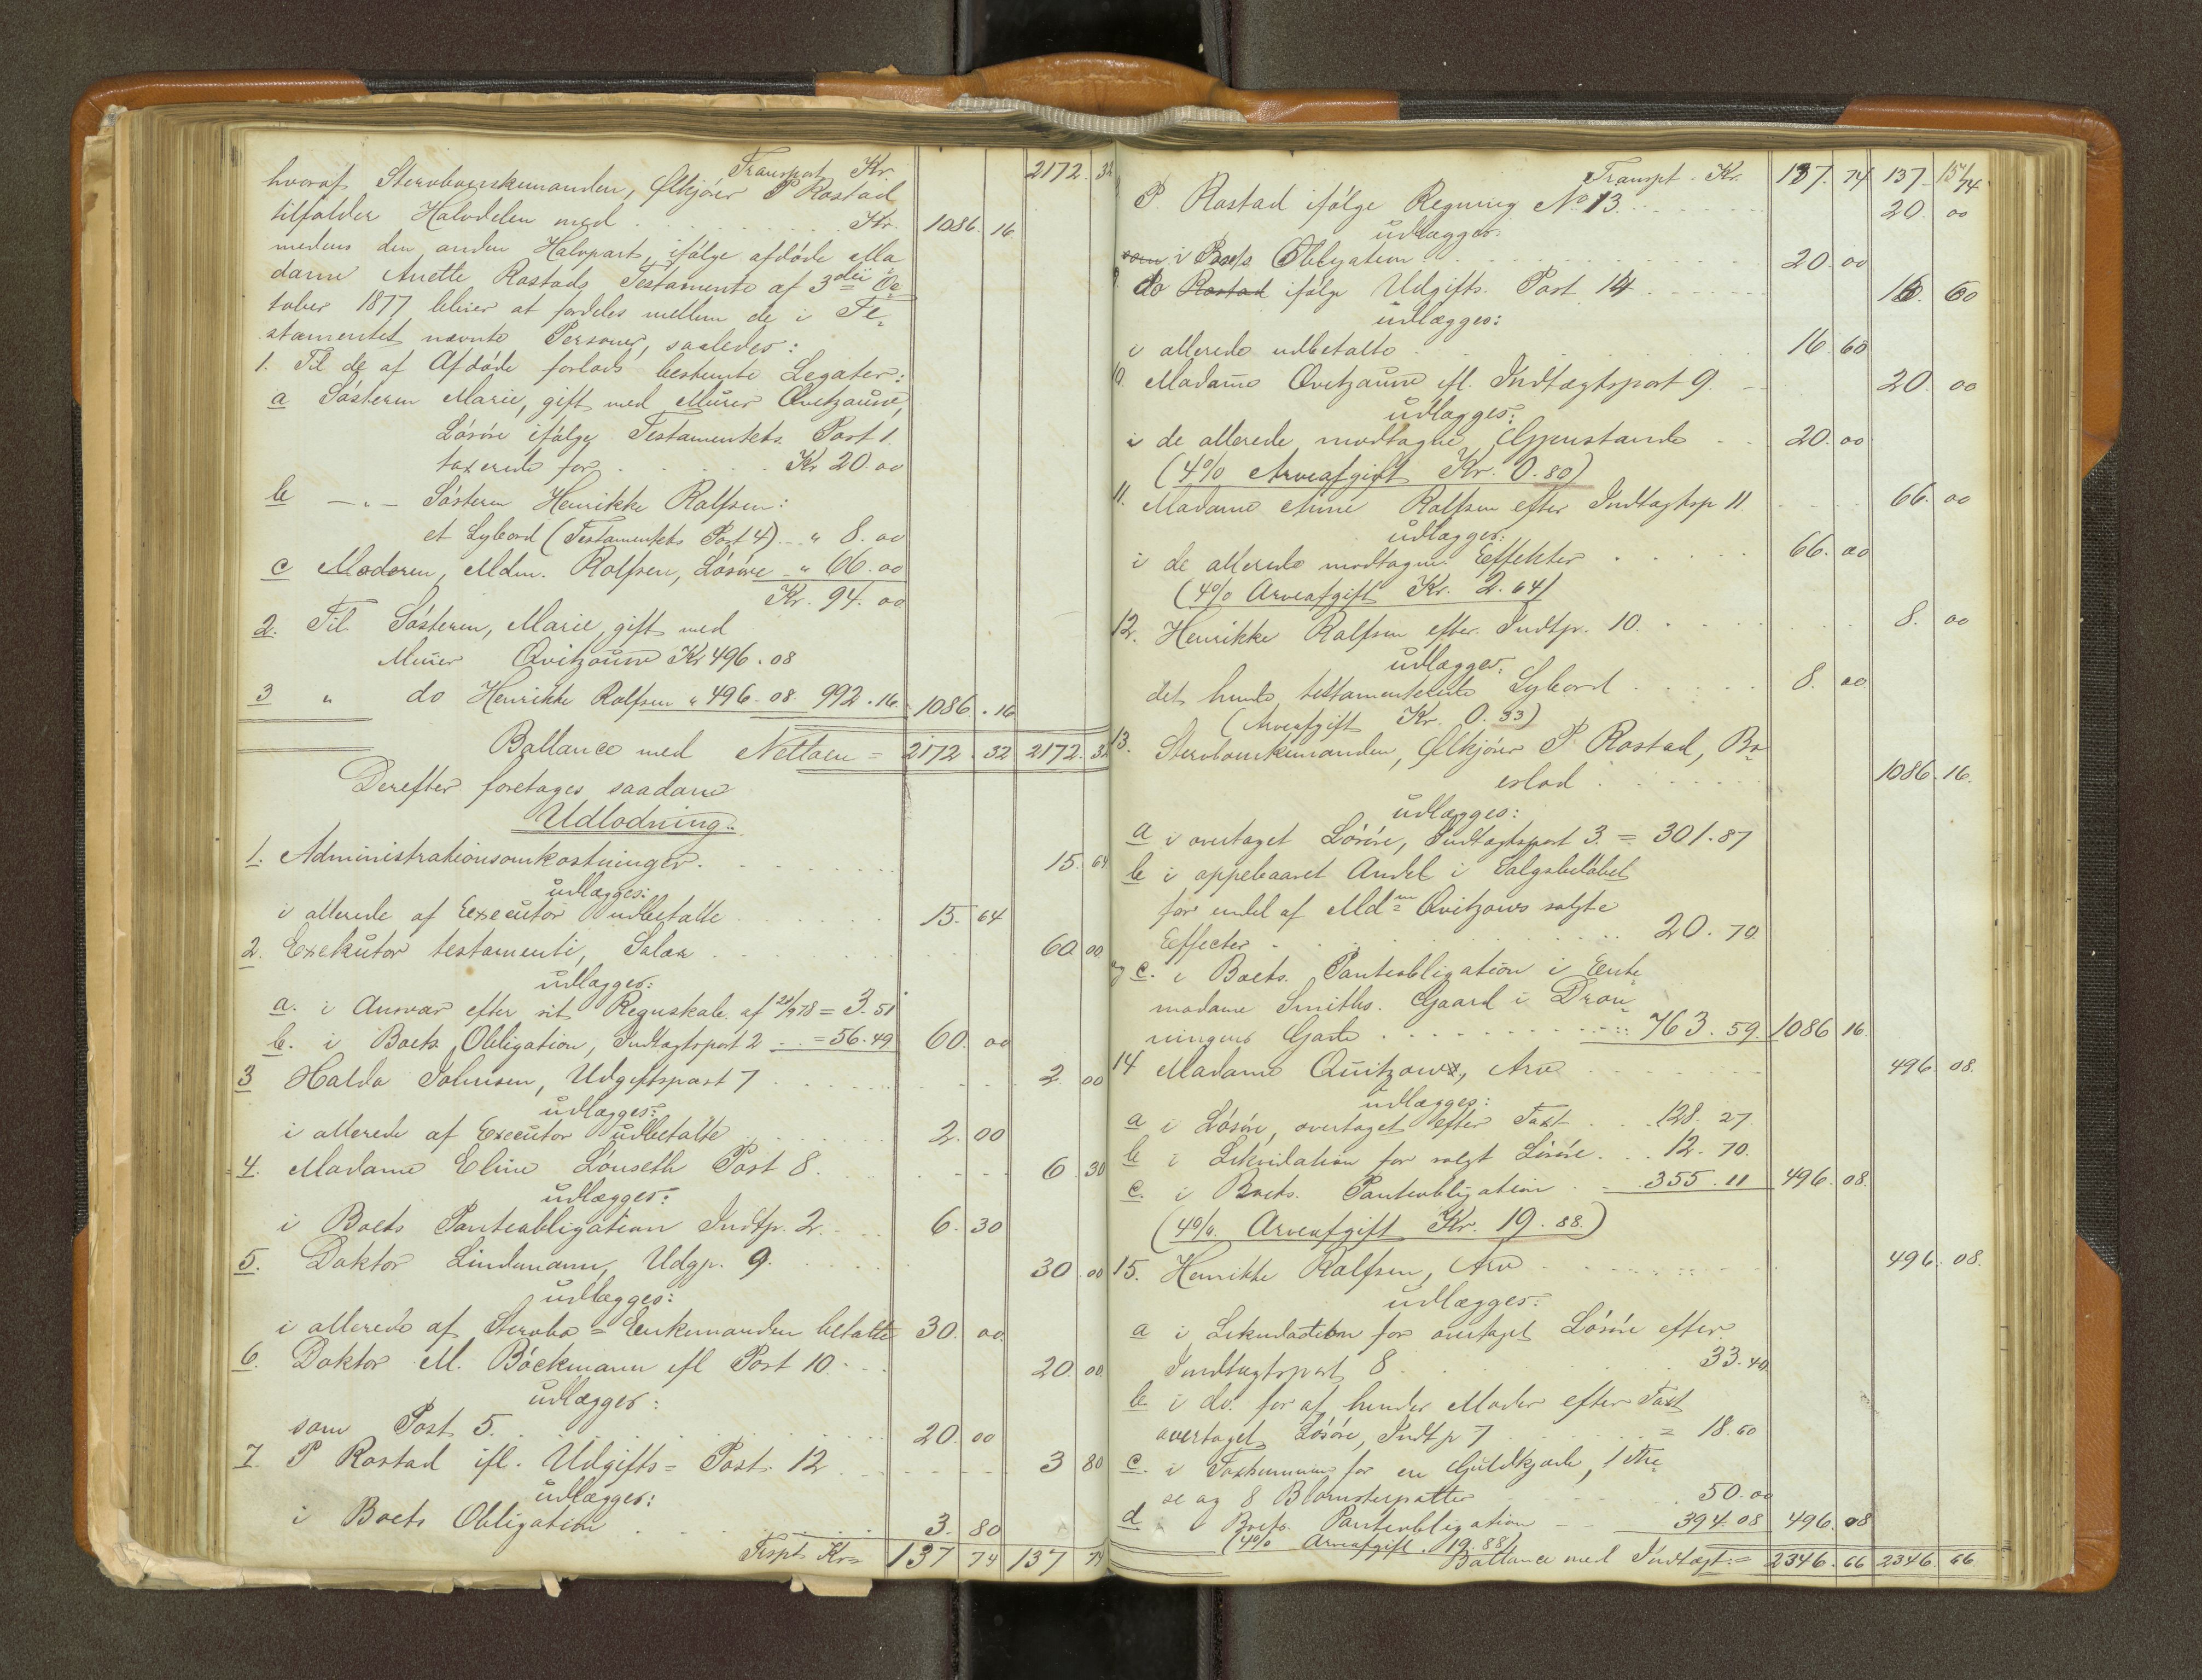 Transport Kr. 2172. 32
hvoraf Stervboenkemanden, Ølkjører P Rostad
tilfalder Halvdelen med . . . . Kr. 1086. 16
medens den anden Halvpart, ifølge afdøde Ma
dame Anette Rostads Testamente af 3die Oc
tober 1877 bliver at fordeles mellem de i Te
stamentet nævnte Personer, saaledes:
1. Til de af Afdøde forlods bestemte Legater:
a Søsteren Marie, gift med Murer Qvitzaune,
Løsøre ifølge Testamentets Post 1
taxerede for . . . . Kr 20. 00
b — " — Søsteren Henrikke Rolfsen:
et Sybord (Testamentets Post 4) . . " 8. 00
c Moderen, Mdm. Rolfsen, Løsøre - " 66. 00
Kr. 94. 00
2. Til Søsteren, Marie gift med
Murer Qvitzoune Kr 496. 08
3 " do Henrikke Rolfsen " 496. 08. 992. 16. 1086. 16
Ballance med Nettoen = 2172. 32 2172. 32
Derefter foretages saadan
Udlodning.
1. Administrationsomkostninger. 15. 64
udlægges:
i allerede af Executor udbetalte 15. 64
2. Exekutor testamenti, Salær 60. 00
udlægges:
a. i Ansvar efter sit Regnskab af 20/9 78 = 3. 51
b. i Boets Obligation, Indtægtspost 2 . . = 56. 49 60. 00
3 Halda Johnsen, Udgiftspost 7 2. 00
udlægges:
i allerede af Executor udbetalte 2. 00
4. Madame Eline Lønseth Post 8. 6. 30
udlægges:
i Boets Panteobligation Indtp. 2. 6. 30
5. Doktor Lindemann, Udgp. 9. 30. 00
udlægges:
i allerede af Stervbo = Enkemanden betalte 30. 00
6. Doktor M. Bøckmann ifl Post 10. 20. 00
udlægges:
som Post 5. 20. 00
7. P Rostad ifl. Udgifts = Post. 12 3 80
udlægges:
i Boets Obligation 3. 80
Trspt Kr = 137 74 137 74
Transpt. Kr. 137. 74 137. 74
P. Rostad ifølge Regning No 13. 20. 00
udlægges
som i Boets Obligation 20. 00
do Rostad ifølge Udgifts. Post 14 16. 60
udlægges:
i allerede udbetalte 16. 60
10. Madame Qvitzaune ifl. Indtægtspost 9. 20. 00
udlægges:
i de allerede modtagne Gjenstande 20. 00
(4% Arveafgift Kr. 0. 80)
11. Madame Anne Rolfsen efter Indtægtsp 11 66. 00
udlægges:
i de allerede modtagne Effekter 66. 00
(4% Arveafgift Kr. 2. 64)
12. Henrikke Rolfsen efter Indtp. 10. 8. 00
udlægges:
det hende testamenterede Sybord 8. 00
(Arveafgift Kr. 0. 33)
13. Stervboenkemanden, Ølkjører P. Rostad, Bo
eslod 1086. 16.
udlægges:
a i overtaget Løsøre, Indtægtspost 3. = 301. 87
b i oppebaaret Andel i Salgsbeløbet
for endel af Mdm Qvitzows solgte
Effecter 20. 70.
og c. i Boets. Panteobligation i Enke
madame Smiths. Gaard i Dron
ningens Gade 763. 59. 1086 16.
14 Madame Quitzow, Arv 496. 08.
udlægges:
a i Løsøre, overtaget efter Taxt 128. 27.
b i Likvidation for solgt Løsøre. 12. 70.
c. i Boets. Panteobligation 355. 11 496. 08.
(4% Arveafgift Kr. 19. 88.)
15. Henrikke Rolfsen, Arv 496. 08.
udlægges:
a i Likvidation for overtaget Løsøre efter
Indtægtspost 8 33. 40
b i do. for af hendes Moder efter Taxt
overtaget Løsøre, Indtp 7 = 18. 60
c. i Taxtsummen for en Guldkjæde, 1
se og 8 Blomsterpotter 50. 00
d i Boets Panteobligation 394. 08 496. 08
(4% Arveafgift. 19. 88)
Ballance med Indtægt: = 2346. 66 2346. 66